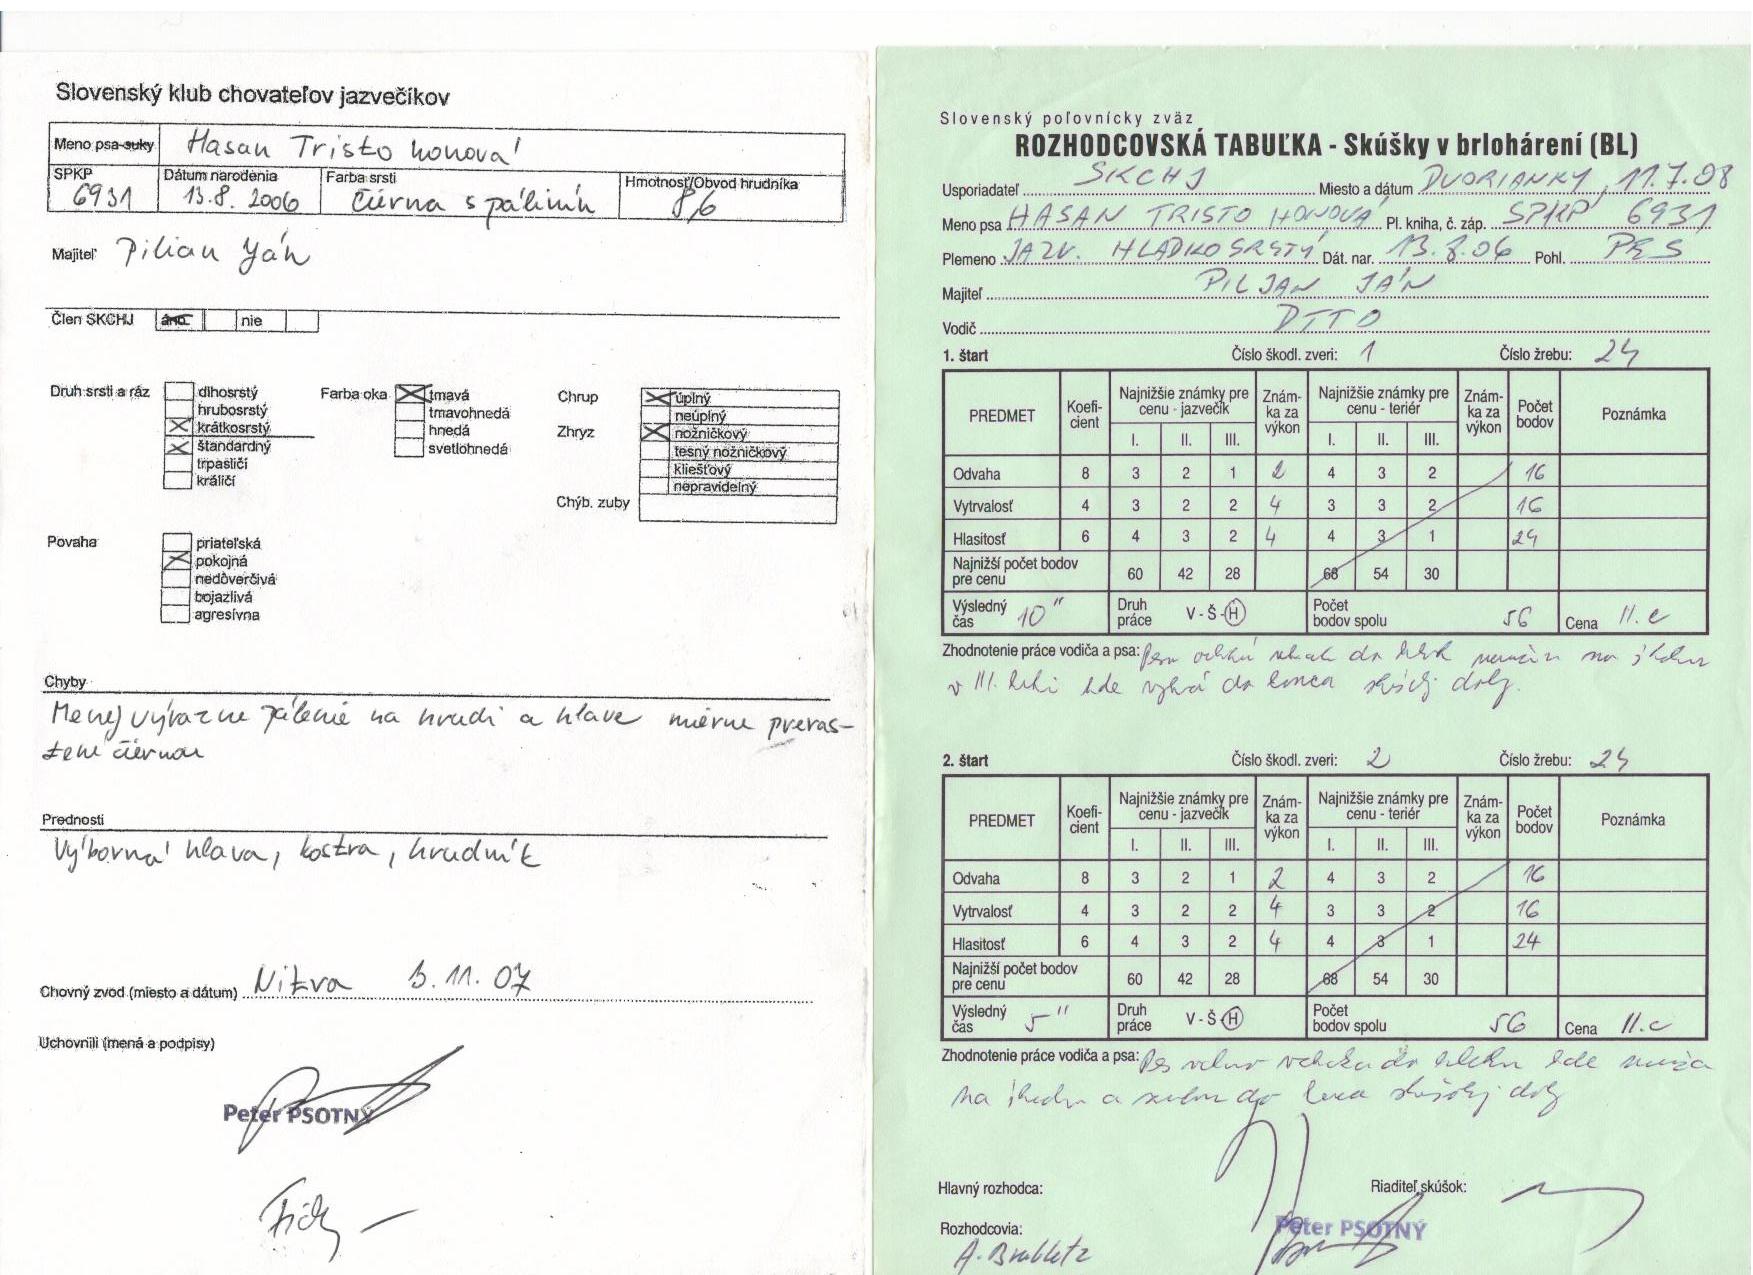 Slovenský klub chovateľov jazvečíkov
Meno psa-suky Hasan Tristo honová
SPKP 6931 Dátum narodenia 13.8.2006 Farba srsti čierna s pálením Hmotnosť/Obvod hrudníka 8,6
Majiteľ Pilian Ján
Člen SKCHJ áno nie
Druh srsti a ráz
dlhosrstý
hrubosrstý
krátkosrstý
štandardný
trpasličí
králičí
Farba oka
tmavá
tmavohnedá
hnedá
svetlohnedá
Chrup
úplný
neúplný
Zhryz
nožničkový
tesný nožničkový
kliešťový
nepravidelný
Chýb. zuby
Povaha
priateľská
pokojná
nedôverčivá
bojazlivá
agresívna
Chyby
Menej výrazne pálenie na hrudi a hlave mierne preras-
tene čiernou
Prednosti
Výborná hlava, kostra, hrudník
Chovný zvod (miesto a dátum) Nitra 3.11.07
Uchovnili (mená a podpisy)
Peter PSOTNÝ
Slovenský poľovnícky zväz
ROZHODCOVSKÁ TABUĽKA - Skúšky v brlohárení (BL)
Usporiadateľ SKCHJ Miesto a dátum DVORIANKY, 11.7.08
Meno psa HASAN TRISTO HONOVÁ Pl. kniha, č. záp. SPKP 6931
Plemeno JAZV. HLADKOSRSTÝ Dát. nar. 13.8.06 Pohl. PES
Majiteľ PILJAN JÁN
Vodič DTTO
1. štart Číslo škodl. zveri: 1 Číslo žrebu: 24
PREDMET Koefi-cient Najnižšie známky pre cenu - jazvečík Znám-ka za výkon Najnižšie známky pre cenu - teriér Znám-ka za výkon Počet bodov Poznámka
I. II. III. I. II. III.
Odvaha 8 3 2 1 2 4 3 2 16
Vytrvalosť 4 3 2 2 4 3 3 2 16
Hlasitosť 6 4 3 2 4 4 3 1 24
Najnižší počet bodov pre cenu 60 42 28 68 54 30
Výsledný čas 10" Druh práce V - Š - H Počet bodov spolu 56 Cena II.c
Zhodnotenie práce vodiča a psa:
v III. kde do konca
2. štart Číslo škodl. zveri: 2 Číslo žrebu: 24
PREDMET Koefi-cient Najnižšie známky pre cenu - jazvečík Znám-ka za výkon Najnižšie známky pre cenu - teriér Znám-ka za výkon Počet bodov Poznámka
I. II. III. I. II. III.
Odvaha 8 3 2 1 2 4 3 2 16
Vytrvalosť 4 3 2 2 4 3 3 2 16
Hlasitosť 6 4 3 2 4 4 3 1 24
Najnižší počet bodov pre cenu 60 42 28 68 54 30
Výsledný čas 5" Druh práce V - Š - H Počet bodov spolu 56 Cena II.c
Zhodnotenie práce vodiča a psa: Pes kde
na a do
Hlavný rozhodca: Riaditeľ skúšok:
Rozhodcovia: Peter PSOTNÝ